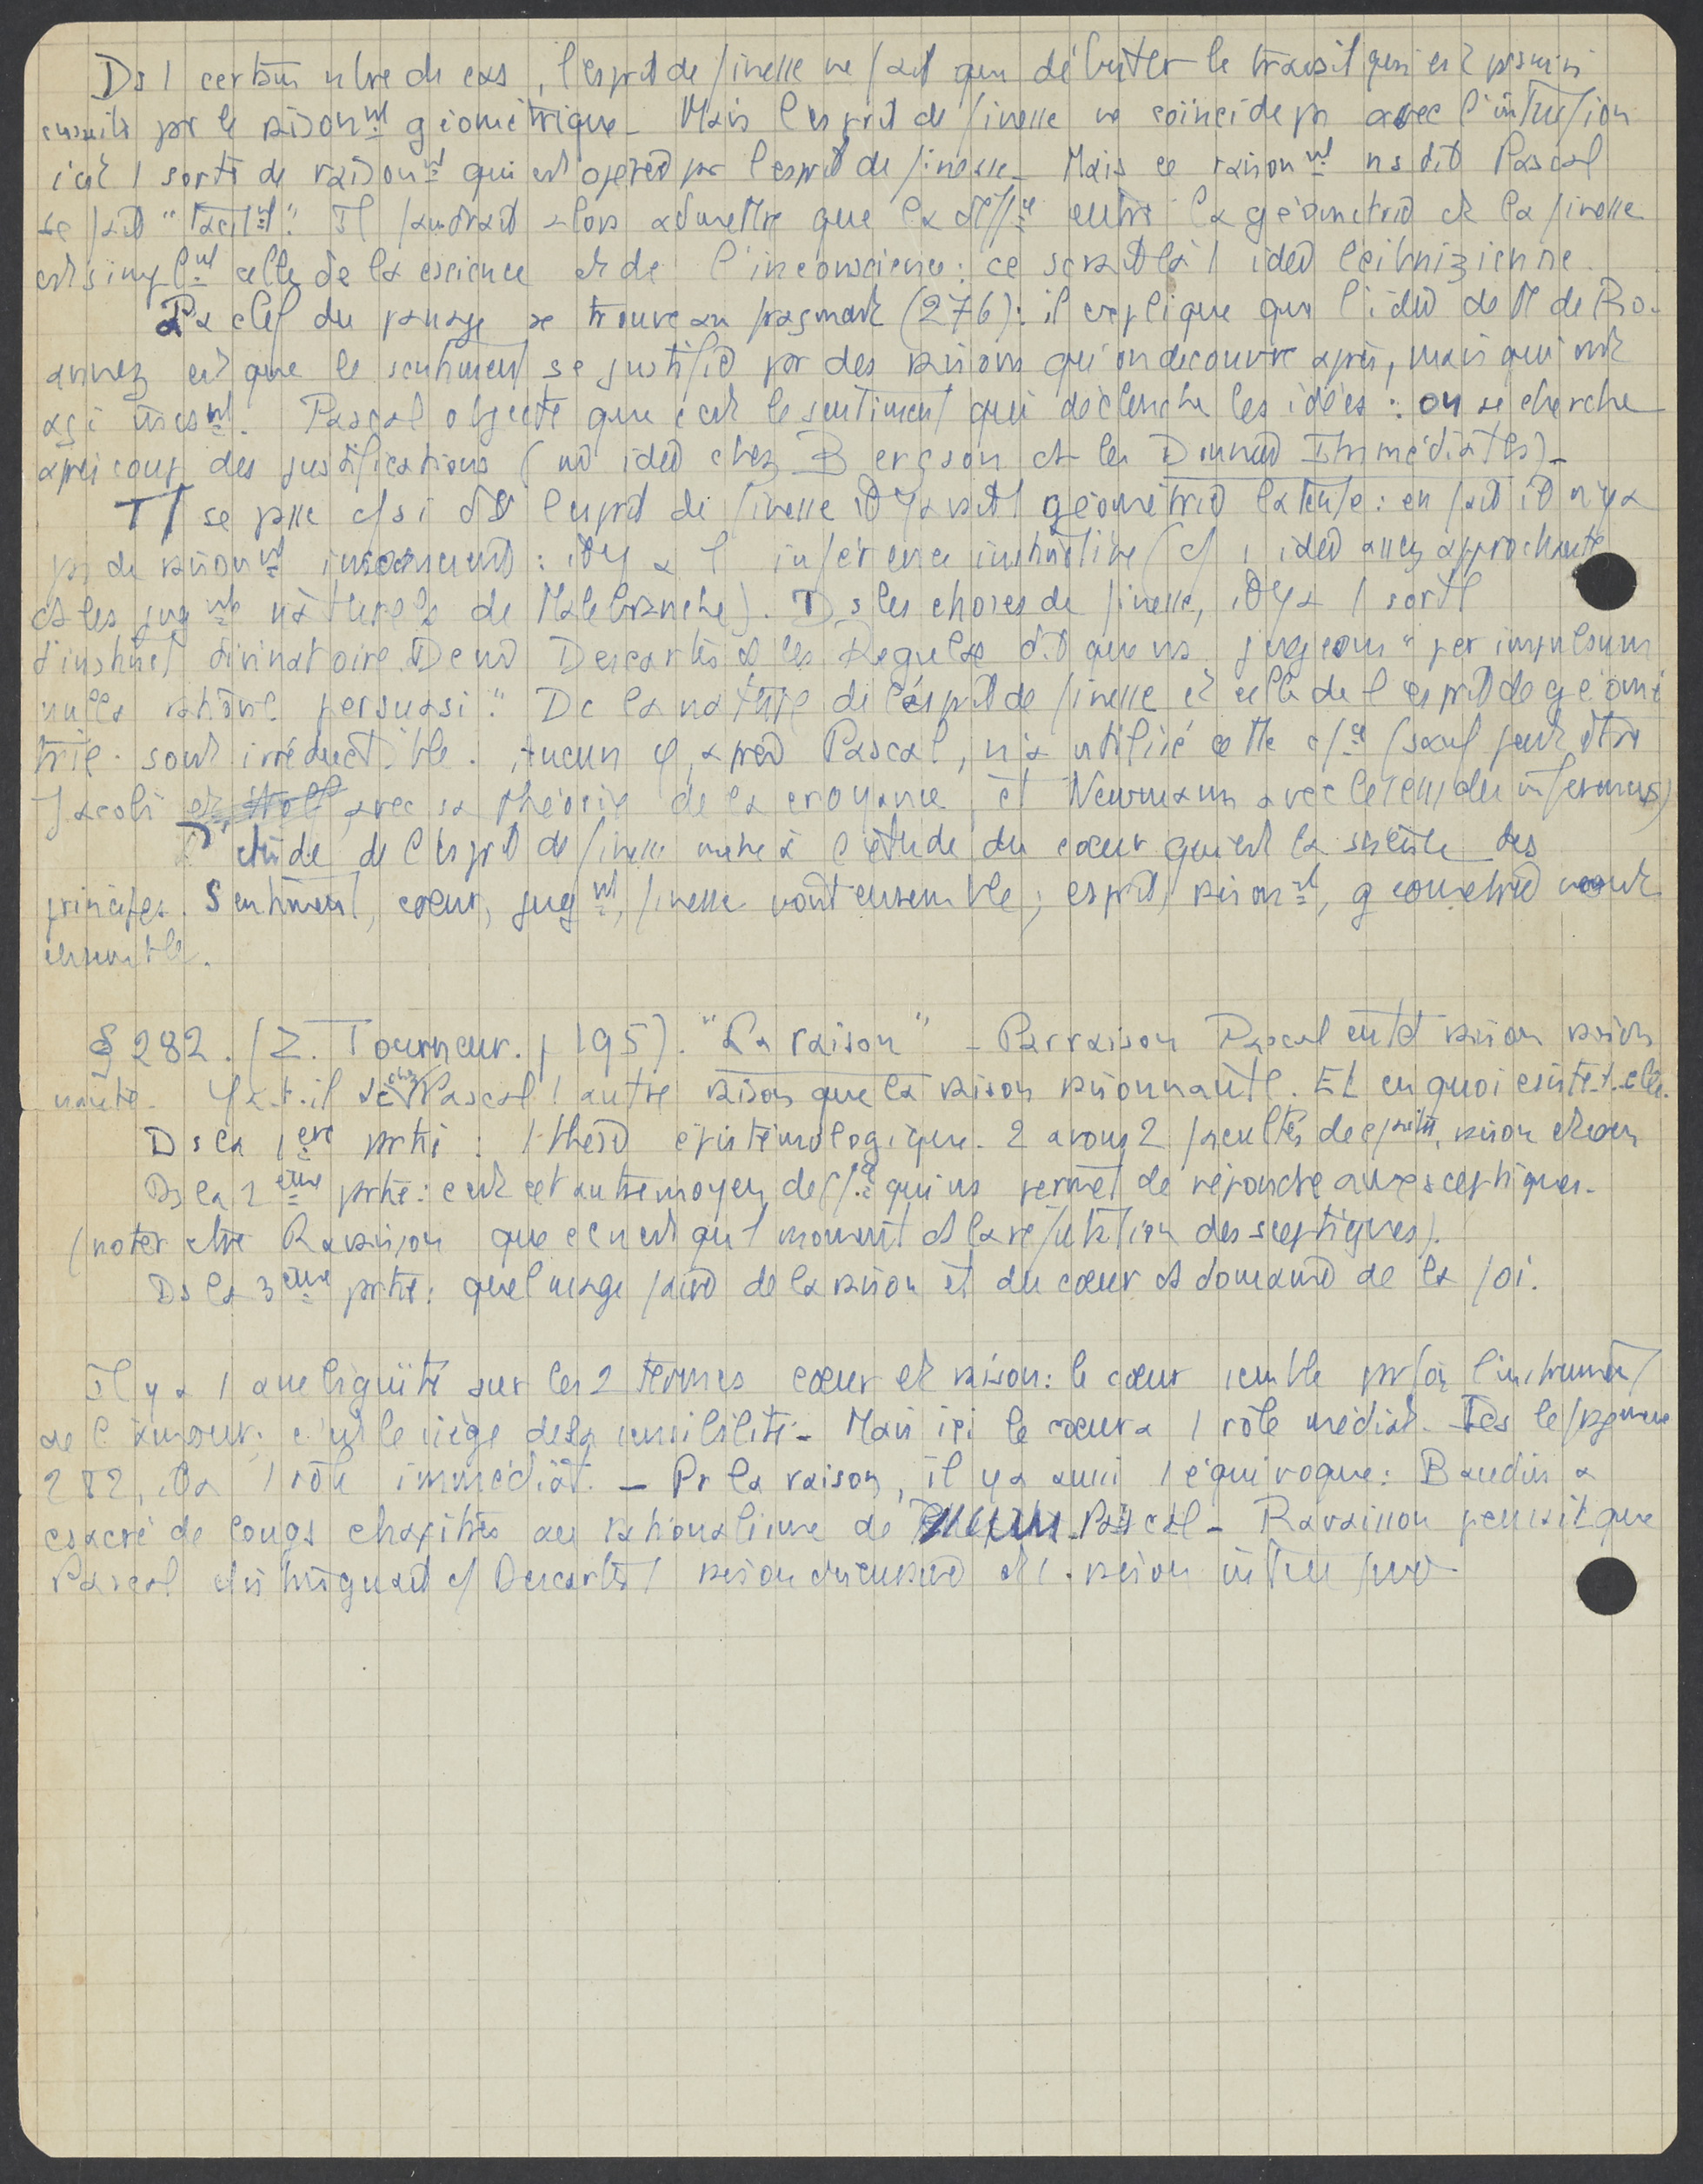 Ds 1 certain nbre de cas, l'esprit de finesse ne fait que débuter le travail qui est poursuivi
ensuite par le raisonnt géométrique _ Mais l'esprit de finesse ne coïncide pas avec l'intuition
c'est 1 sorte de raisonnt qui est opérée par l'esprit de finesse _ Mais ce raisonnt ns dit Pascal
se fait "tacitt". Il faudrait alors admettre que la diffce entre la géométrie et la finesse
est simplmt celle de la cscience et de l'inconscience : ce serait là 1 idée leibnizienne.
La clef du passage se trouve au fragment (276) : il explique que l'idée de M de Ro-
annez est que le sentiment se justifie par des raisons qu'on découvre après, mais qui ont
agi Pascal objecte que c'est le sentiment qui déclenche les idées : on se cherche
après coup des justifications (mê idée chez Bergson ds les Données Immédiates) _
Tt se passe c/ si ds l'esprit de finesse il y avait 1 géométrie latente : en fait il n'y a
pas de raisonnt inconscient : il y a 1 inférence instinctive (c/ 1 idée assez approchante
ds les jugmts naturels de Malebranche). Ds les choses de finesse, il y a 1 sorte
d'instinct divinatoire. De mê Descartes ds les Regulae dit que ns jugeons "per impulsum
nulla ratione persuasi". Dc la nature de l'esprit de finesse et celle de l'esprit de géomé
trie sont irréductible. Aucun φ, après Pascal, n'a utilisé cette (sauf peut être
Jacobi avec sa théorie de la croyance, et Newmann avec le sens des inférences)
L'étude de l'esprit de finesse mène à l'étude du cœur qui est la science des
principes. Sentiment, cœur, jugmt, finesse vont ensemble ; esprit, raisonnt, géométrie vont
ensemble.
§ 282. (Z. Tourneur. p 195). "La raison" _ Par raison Pascal entd raison raison
nante. Y a-t-il chez Pascal 1 autre raison que la raison raisonnante. Et en quoi csiste-t-elle.
Ds la 1ère partie : 1 thèse épistémologique. 2 avons 2 facultés de raison et cœur
Ds la 2ème partie : c'est cet autre moyen de qui ns permet de répondre aux sceptiques _
(noter ctre Ravaisson que ce n'est qu'1 moment ds la réfutation des sceptiques).
Ds la 3ème partie : quel usage faire de la raison et du cœur ds domaine de la foi.
Il y a 1 ambiguïté sur les 2 termes cœur et raison : le cœur semble parfois l'instrument
de l'amour. c'est le siège de la sensibilité _ Mais ici le cœur a 1 rôle médiat. Ds le fragment
282, il a 1 rôle immédiat. _ Pr la raison, il y a aussi 1 équivoque : Baudin a
csacré de longs chapitres au rationalisme de Pascal _ Ravaisson pensait que
Pascal distinguait c/ Descartes 1 raison discursive et 1 raison intuitive